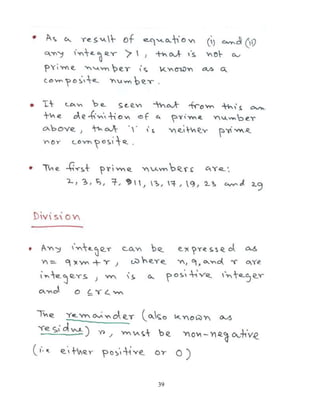 • As a result of equation (i) and (ii)
any integer > 1, that is not a
prime number is known as a
composite number.
• It can be seen that from this an
the definition of a prime number
above, that '1' is neither prime
nor composite.
• The first prime numbers are:
2, 3, 5, 7, 11, 13, 17, 19, 23 and 29
Division
• Any integer can be expressed as
n = q×m + r, where n, q, and r are
integers, m is a positive integer
and 0 ≤ r < m
The remainder (also known as
residue) r, must be non-negative
(i.e either positive or 0)
39